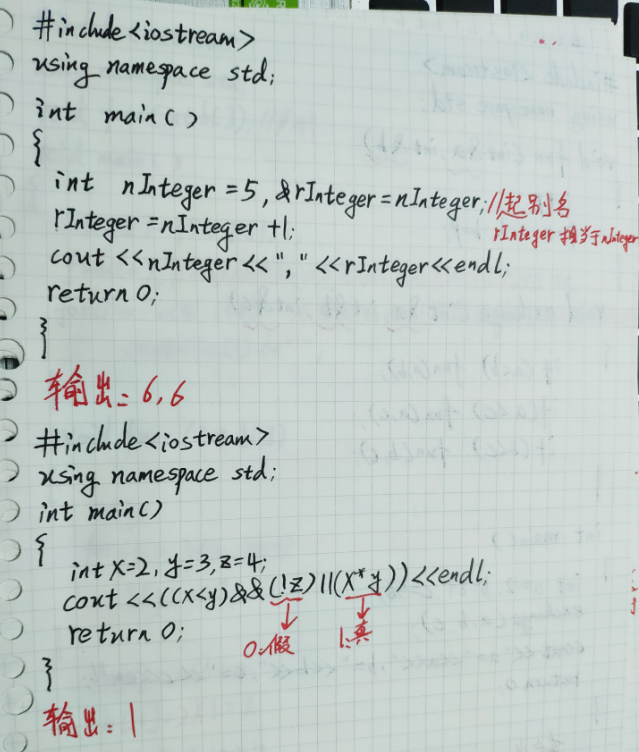 #include<iostream>
using namespace std;
int main()
{
int nInteger=5,&rInteger=nInteger;//起别名
rInteger=nInteger+1; rInteger相当于nInteger
cout<<nInteger<<","<<rInteger<<endl;
return 0;
}
输出:6,6
#include<iostream>
using namespace std;
int main()
{
int x=2,y=3,z=4;
cout<<((x<y)&&(!z)||(x*y))<<endl;
return 0; 0.假 1.真
}
输出:1